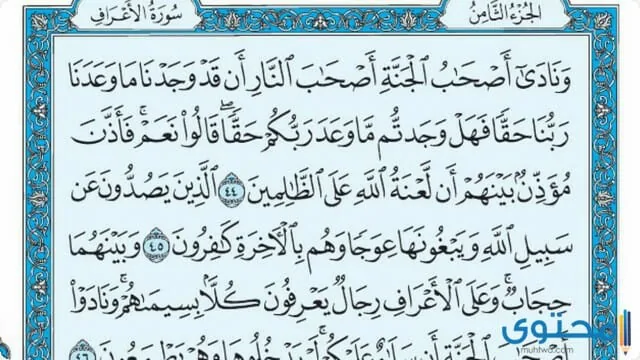 سُورَةُ الأَعْرَافِ
الجُزْءُ الثَّامِنُ
وَنَادَىٰٓ أَصْحَٰبُ ٱلْجَنَّةِ أَصْحَٰبَ ٱلنَّارِ أَن قَدْ وَجَدْنَا مَا وَعَدَنَا
رَبُّنَا حَقًّا فَهَلْ وَجَدتُّم مَّا وَعَدَ رَبُّكُمْ حَقًّا ۖ قَالُوا۟ نَعَمْ ۚ فَأَذَّنَ
مُؤَذِّنٌۢ بَيْنَهُمْ أَن لَّعْنَةُ ٱللَّهِ عَلَى ٱلظَّٰلِمِينَ ٤٤ ٱلَّذِينَ يَصُدُّونَ عَن
سَبِيلِ ٱللَّهِ وَيَبْغُونَهَا عِوَجًا وَهُم بِٱلْءَاخِرَةِ كَٰفِرُونَ ٤٥ وَبَيْنَهُمَا
حِجَابٌ ۚ وَعَلَى ٱلْأَعْرَافِ رِجَالٌ يَعْرِفُونَ كُلًّۢا بِسِيمَىٰهُمْ ۚ وَنَادَوْا۟
ٱلْجَنَّةِ أَن سَلَٰمٌ عَلَيْكُمْ ۚ لَمْ يَدْخُلُوهَا وَهُمْ يَطْمَعُونَ ٤٦
محتوى
muhtwa.com